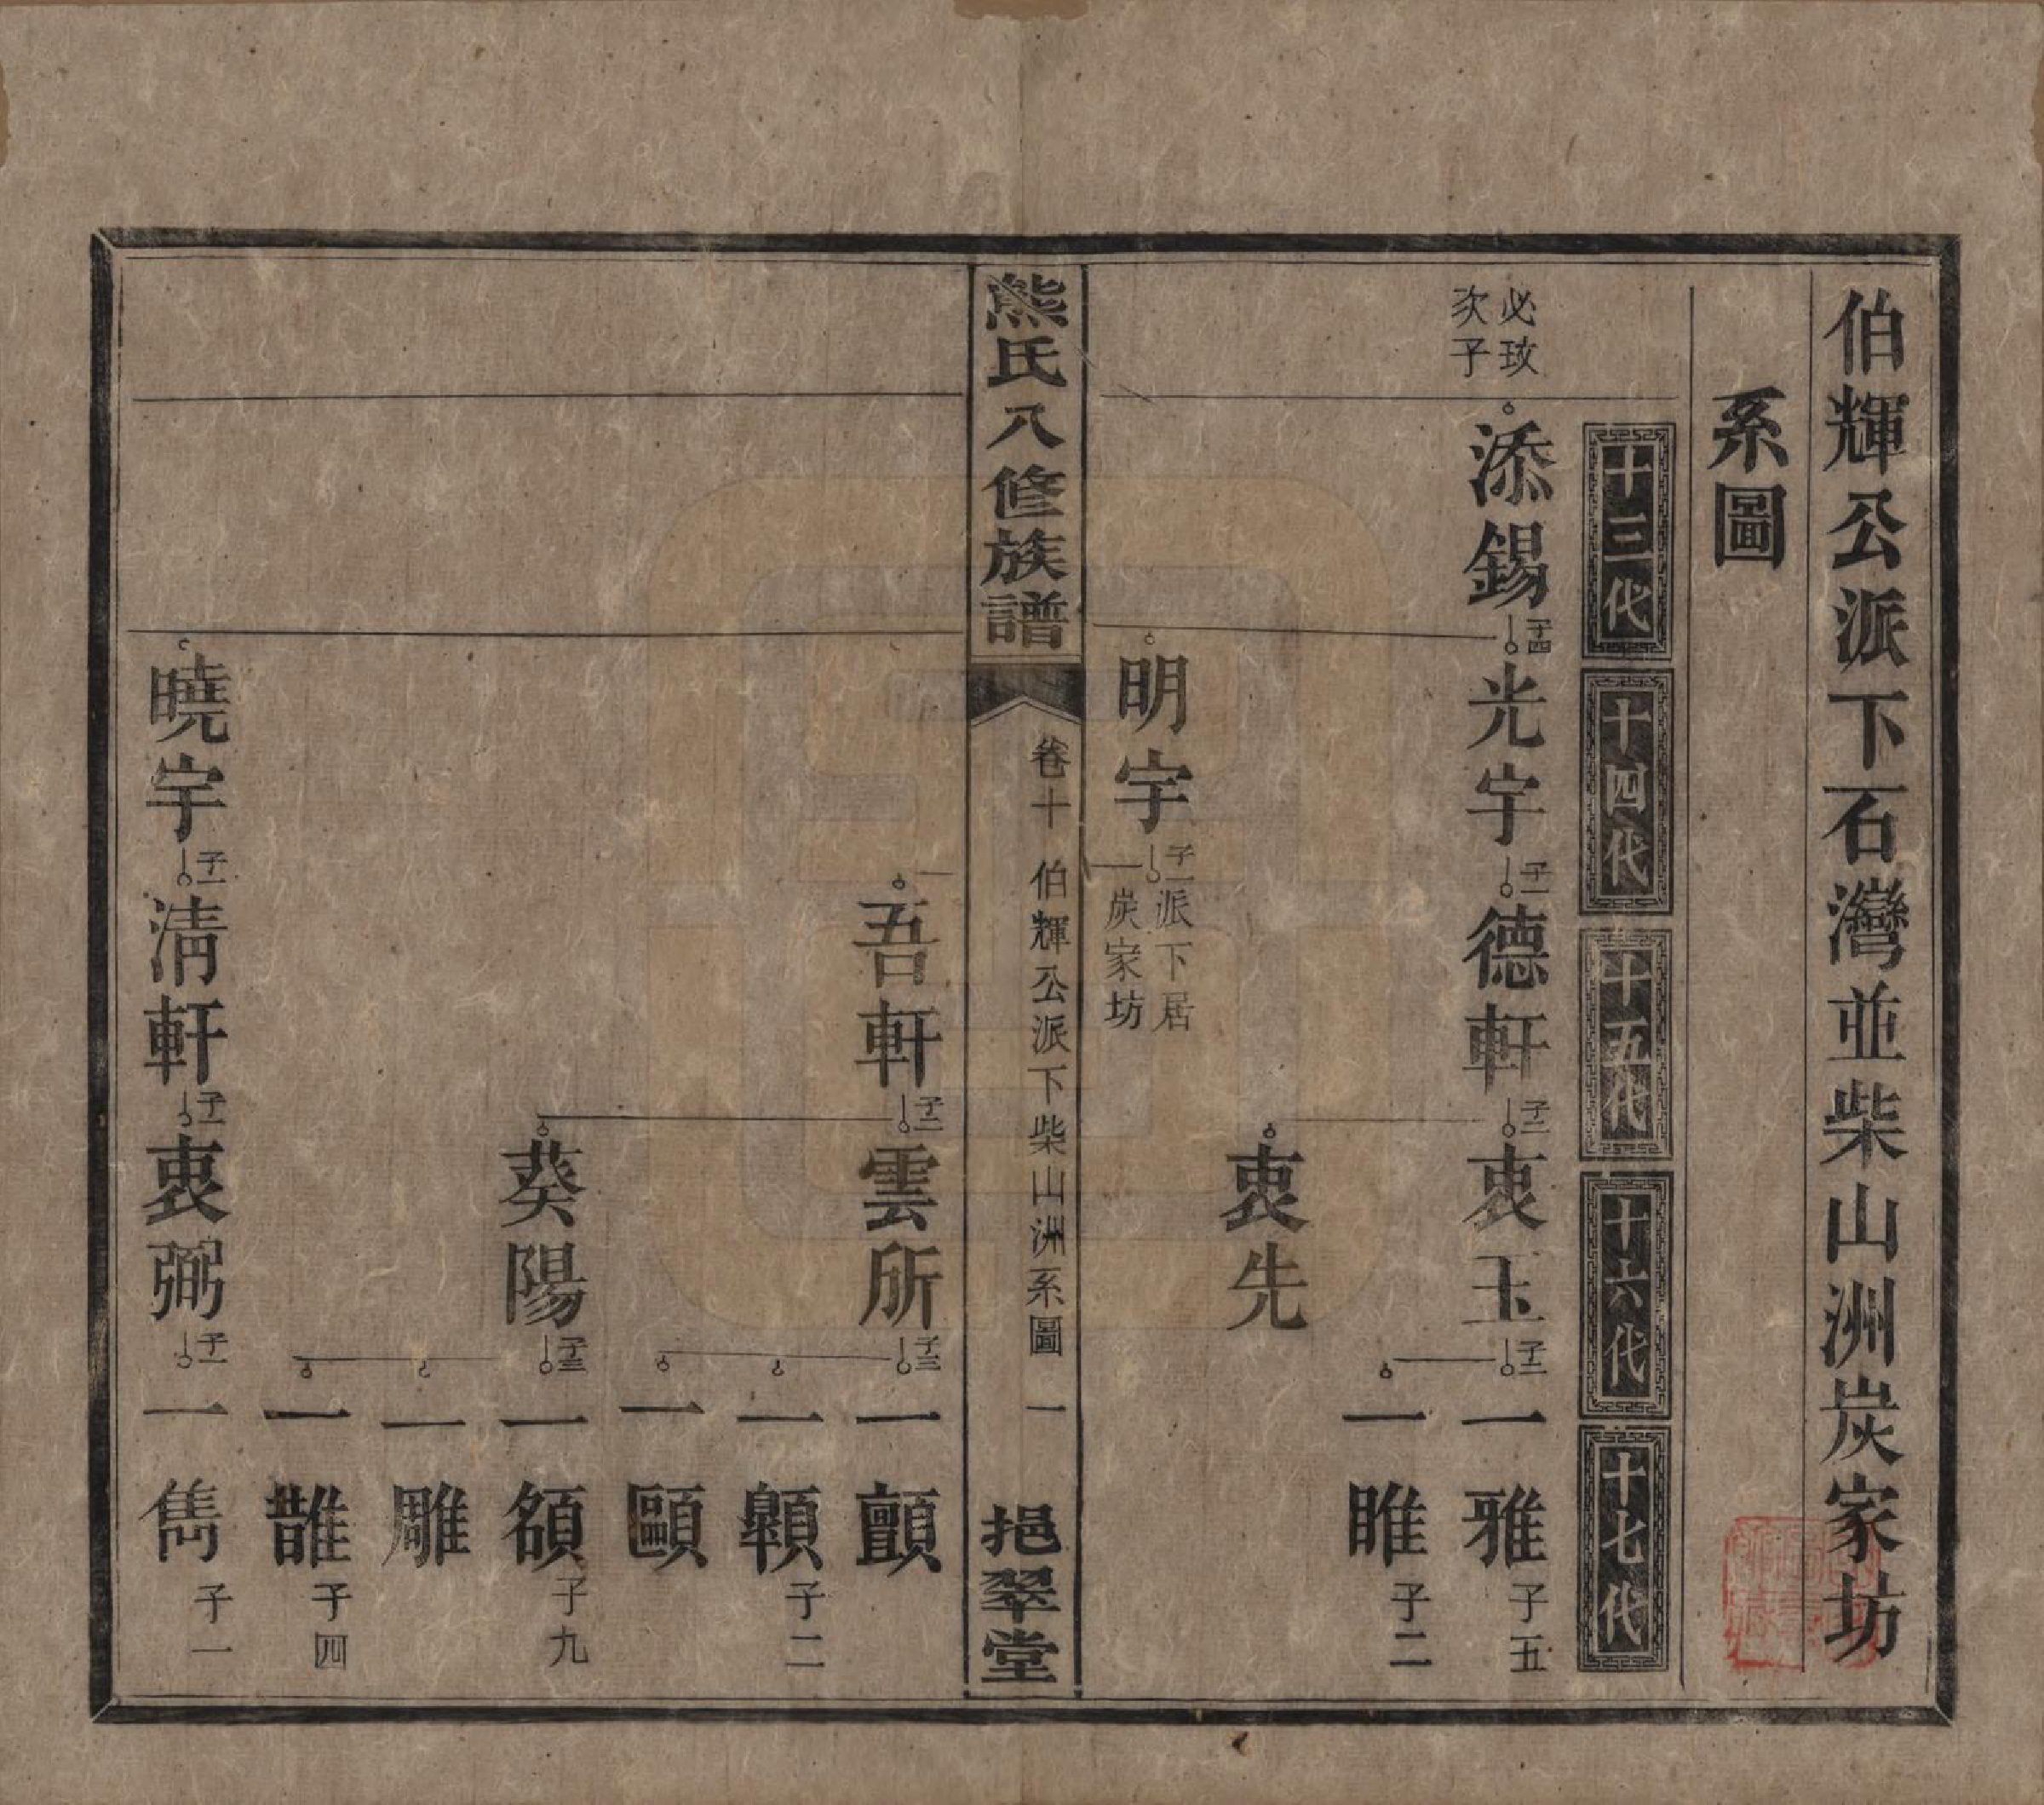 伯輝公派下石灣並柴山洲炭家坊
系圖
十三代
十四代
十五代
十六代
十七代
必玫
次子
添錫
子四
光宇
子二
德軒
子二
衷玉
子二
一雅
子五
一睢
子二
衷先
明宇
子一
派下居
炭家坊
熊氏八修族譜
卷十
伯輝公派下柴山洲系圖
一
挹翠堂
吾軒
子二
雲所
子三
一顫
一顊
子二
一頤
葵陽
子三
一頟
子九
一雕
一誰
子四
曉宇
子一
清軒
子一
衷弼
子一
一雋
子一